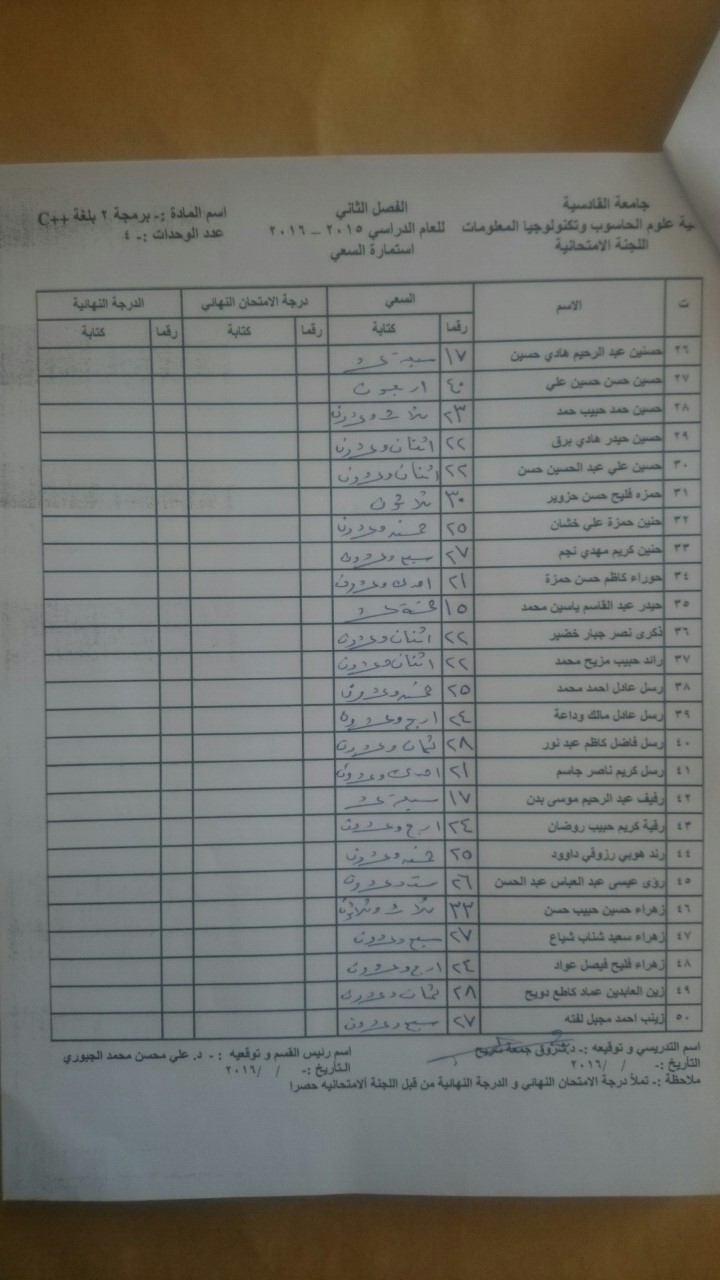 جامعة القادسية
ية علوم الحاسوب وتكنولوجيا المعلومات
اللجنة الامتحانية
الفصل الثاني
للعام الدراسي ٢٠١٥ – ٢٠١٦
استمارة السعي
اسم المادة :- برمجة ٢ بلغة C++
عدد الوحدات :- ٤
ت الاسم السعي درجة الامتحان النهائي الدرجة النهائية
رقما كتابة رقما كتابة رقما كتابة
٢٦ حسنين عبد الرحيم هادي حسين ١٧ سبعة عشر
٢٧ حسين حسن حسين علي ٤٠ اربعون
٢٨ حسين حمد حبيب حمد ٢٣ ثلاث وعشرون
٢٩ حسين حيدر هادي برق ٢٢ اثنان وعشرون
٣٠ حسين علي عبد الحسين حسن ٢٢ اثنان وعشرون
٣١ حمزه فليح حسن حزوير ٣٠ ثلاثون
٣٢ حنين حمزة علي خشان ٢٥ خمسه وعشرون
٣٣ حنين كريم مهدي نجم ٢٧ سبع وعشرون
٣٤ حوراء كاظم حسن حمزة ٢١ احدى وعشرون
٣٥ حيدر عبد القاسم ياسين محمد ١٥ خمسة عشر
٣٦ ذكرى نصر جبار خضير ٢٢ اثنان وعشرون
٣٧ رائد حبيب مزيح محمد ٢٢ اثنان وعشرون
٣٨ رسل عادل احمد محمد ٢٥ خمسه وعشرون
٣٩ رسل عادل مالك وداعة ٢٤ اربع وعشرون
٤٠ رسل فاضل كاظم عبد نور ٢٨ ثمان وعشرون
٤١ رسل كريم ناصر جاسم ٢١ احدى وعشرون
٤٢ رفيف عبد الرحيم موسى بدن ١٧ سبعة عشر
٤٣ رقية كريم حبيب روضان ٢٤ اربع وعشرون
٤٤ رند هوبي رزوقي داوود ٢٥ خمسه وعشرون
٤٥ رؤى عيسى عبد العباس عبد الحسن ٢٦ ست وعشرون
٤٦ زهراء حسين حبيب حسن ٣٣ ثلاث وثلاثون
٤٧ زهراء سعيد شناب شياع ٢٧ سبع وعشرون
٤٨ زهراء فليح فيصل عواد ٢٤ اربع وعشرون
٤٩ زين العابدين عماد كاطع دويح ٢٨ ثمان وعشرون
٥٠ زينب احمد مجبل لفته ٢٧ سبع وعشرون
اسم التدريسي و توقيعه :- د. جمعة
التاريخ :- / / ٢٠١٦
اسم رئيس القسم و توقيعه :- د. علي محسن محمد الجبوري
التاريخ :- / / ٢٠١٦
ملاحظة :- تملأ درجة الامتحان النهائي و الدرجة النهائية من قبل اللجنة الامتحانيه حصرا